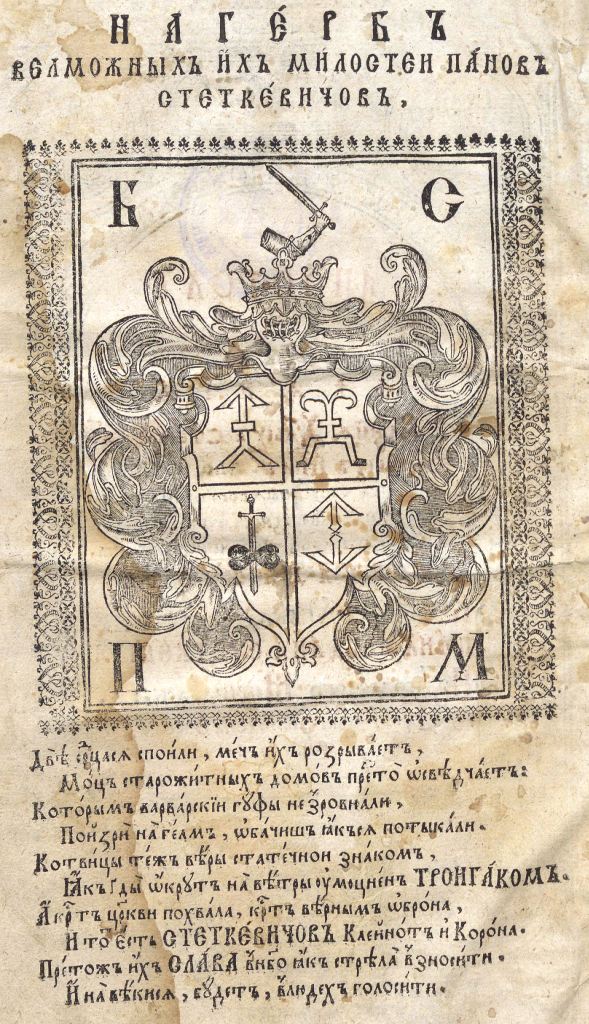 НА ГЕ́РБЪ
ВЕЛМОЖНЫХЪ И҆́ХЪ МИ́ЛОСТЕИ ПА́НОВЪ
СТЕТКЕ́ВИЧОВЪ,
Б С
П М
Двѣ́ сп҃цася споили, ме́чъ и҆́хъ розрыва́етъ,
Мо́цъ старожи́тныхъ домо́въ пре́то ѡ҆свѣ́дчаетъ:
Кото́рымъ варва́рскїи гу́фы не зровна́ли,
Пои҆зри́ на́ геа́мъ, ѡ҆ба́чишъ ꙗ҆́къся потыка́ли.
Котви́цы те́жъ вѣ́ры стате́чнои зна́комъ,
Ꙗ҆́къ гды̀ ѡ҆кру́тъ на вѣ́тры ᲂу҆моцне́нъ ТРОИГА́КОМЪ.
А҆ кр҃тъ цр҃кви похва́ла, кр҃тъ вѣ́рнымъ ѡ҆бро́на,
И то̀ е҆́сть СТЕТКЕ́ВИЧОВЪ Клейно́тъ и҆ Коро́на.
Пре́тожъ и҆́хъ СЛА́ВА в̾не́бо ꙗ҆́къ стрѣла̀ в̾зноси́ти.
И҆ на вѣ́кися, бу́детъ, в̾лю́дехъ голоси́ти.